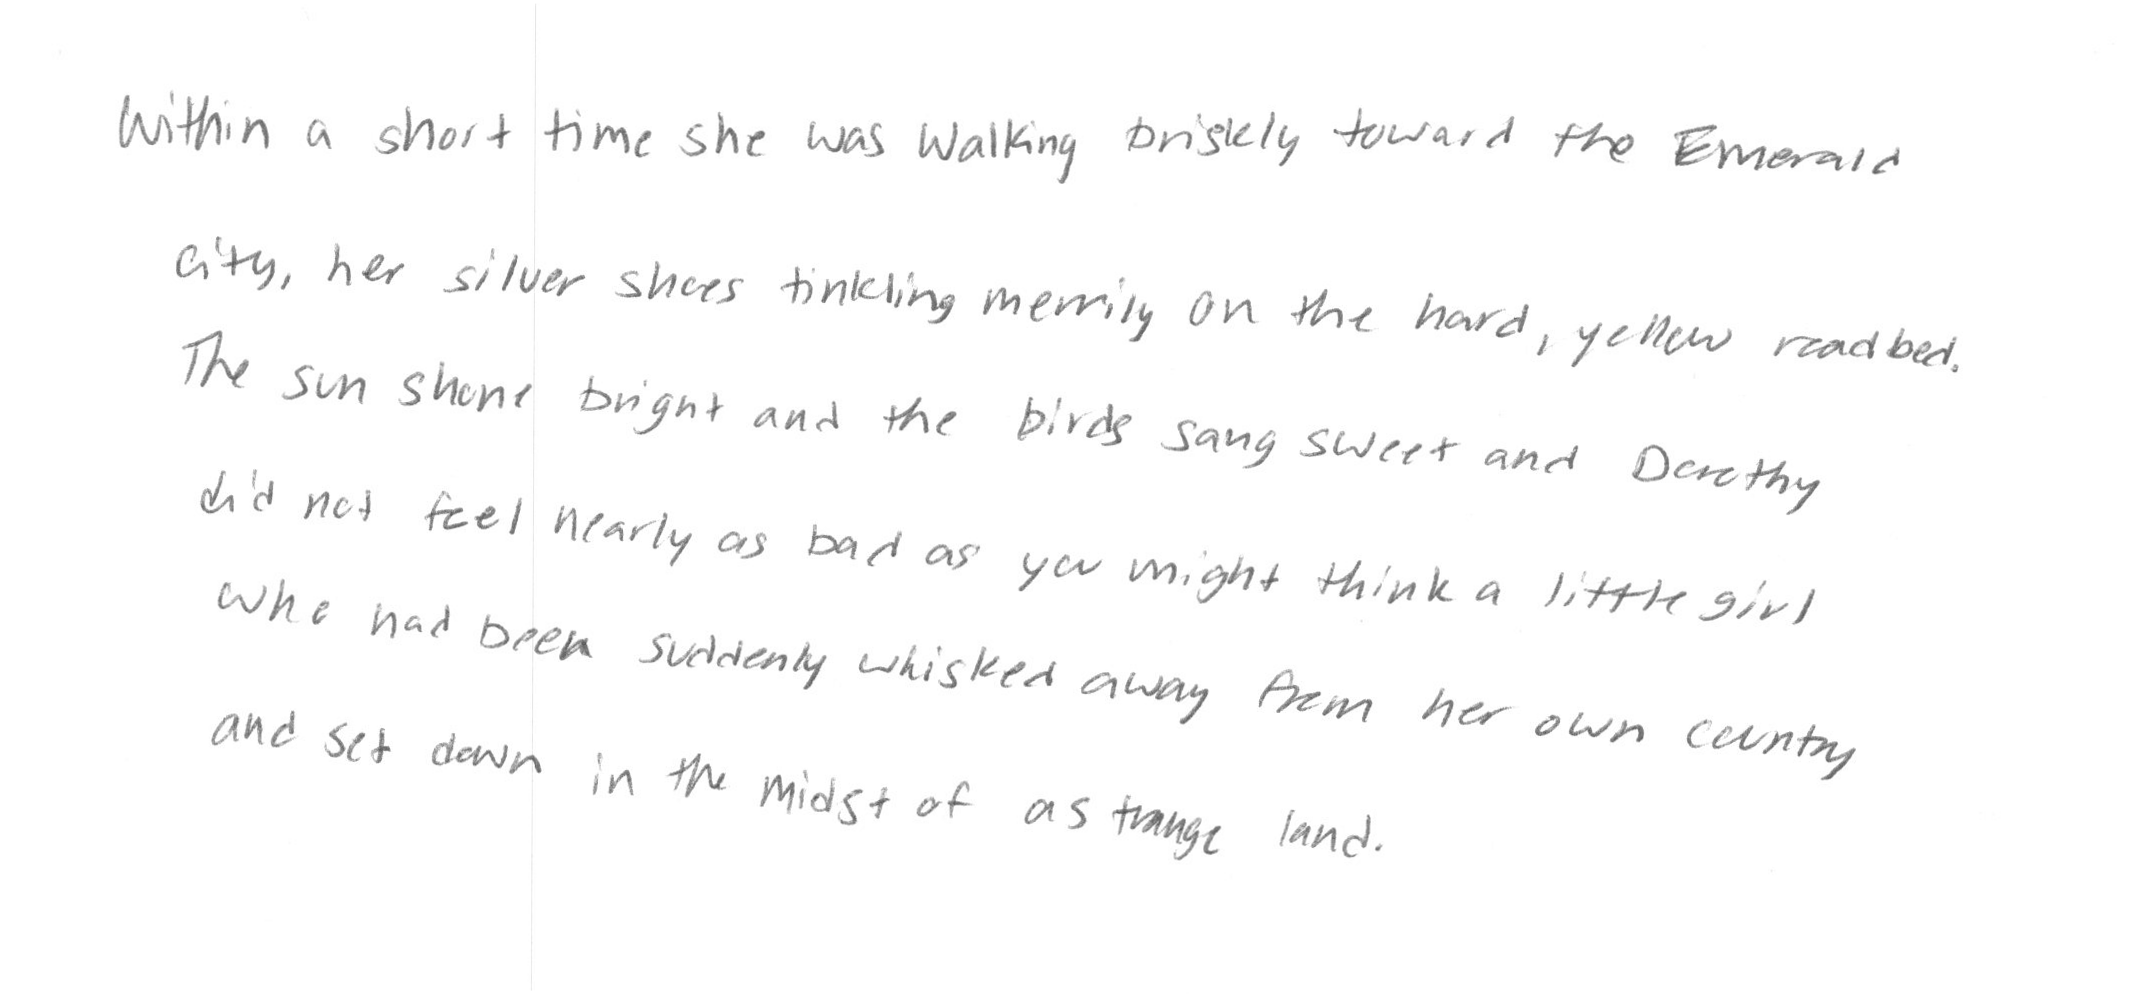 Within a short time she was walking briskly toward the Emerald
city, her silver shoes tinkling merrily on the hard, yellow roadbed.
The sun shone bright and the birds sang sweet and Dorothy
did not feel nearly as bad as you might think a little girl
who had been suddenly whisked away from her own country
and set down in the midst of a strange land.